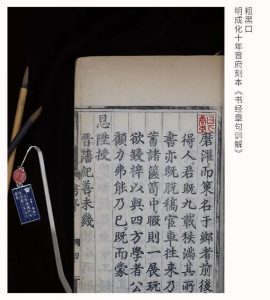 粗黑口
明成化十年晋府刻本《书经章句训解》
磨濯而策名于鄉者前後
得人君既九載秩滿其所
書亦既脫稿宦車往來乃
蓄諸篋笥中暇則一展玩
欲鋟梓以與四方學者公
顧力弗能乃已既而蒙
恩陞授
晉藩紀善未幾